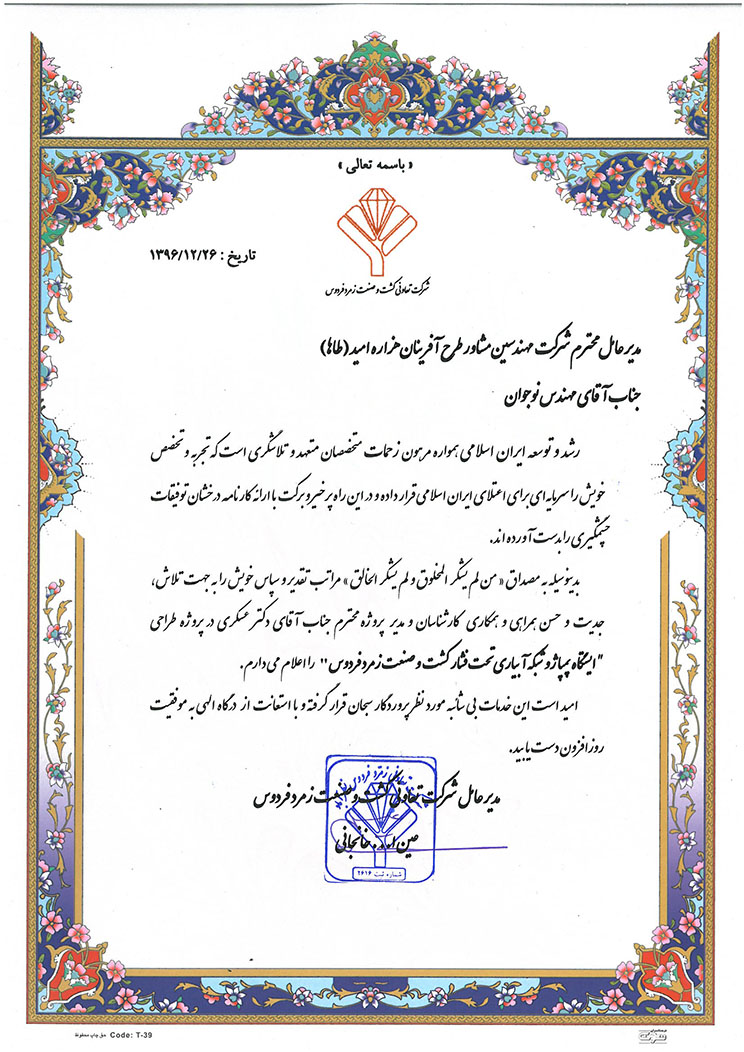 « باسمه تعالی »
تاریخ : ۱۳۹۶/۱۲/۲۶
شرکت تعاونی کشت و صنعت زمرد فردوس
مدیر عامل محترم شرکت مهندسین مشاور طرح آفرینان هزاره امید (طاها)
جناب آقای مهندس نوجوان
رشد و توسعه ایران اسلامی همواره مرهون زحمات متخصصان متعهد و تلاشگری است که تجربه و تخصص
خویش را سرمایه ای برای اعتلای ایران اسلامی قرار داده و در این راه پر خیر و برکت با ارائه کارنامه درخشان توفیقات
چشمگیری را بدست آورده اند.
بدینوسیله به مصداق « من لم یشکر المخلوق و لم یشکر الخالق » مراتب تقدیر و سپاس خویش را به جهت تلاش،
جدیت و حسن همراهی و همکاری کارشناسان و مدیر پروژه محترم جناب آقای دکتر عسکری در پروژه طراحی
"ایستگاه پمپاژ و شبکه آبیاری تحت فشار کشت و صنعت زمرد فردوس" را اعلام می دارم.
امید است این خدمات بی شائبه مورد نظر پروردگار سبحان قرار گرفته و با استعانت از درگاه الهی به موفقیت
روز افزون دست یابید.
مدیر عامل شرکت تعاونی کشت و صنعت زمرد فردوس
عین ا... خانجانی
شماره ثبت ۲۶۱۶
حق چاپ محفوظ Code: T-39